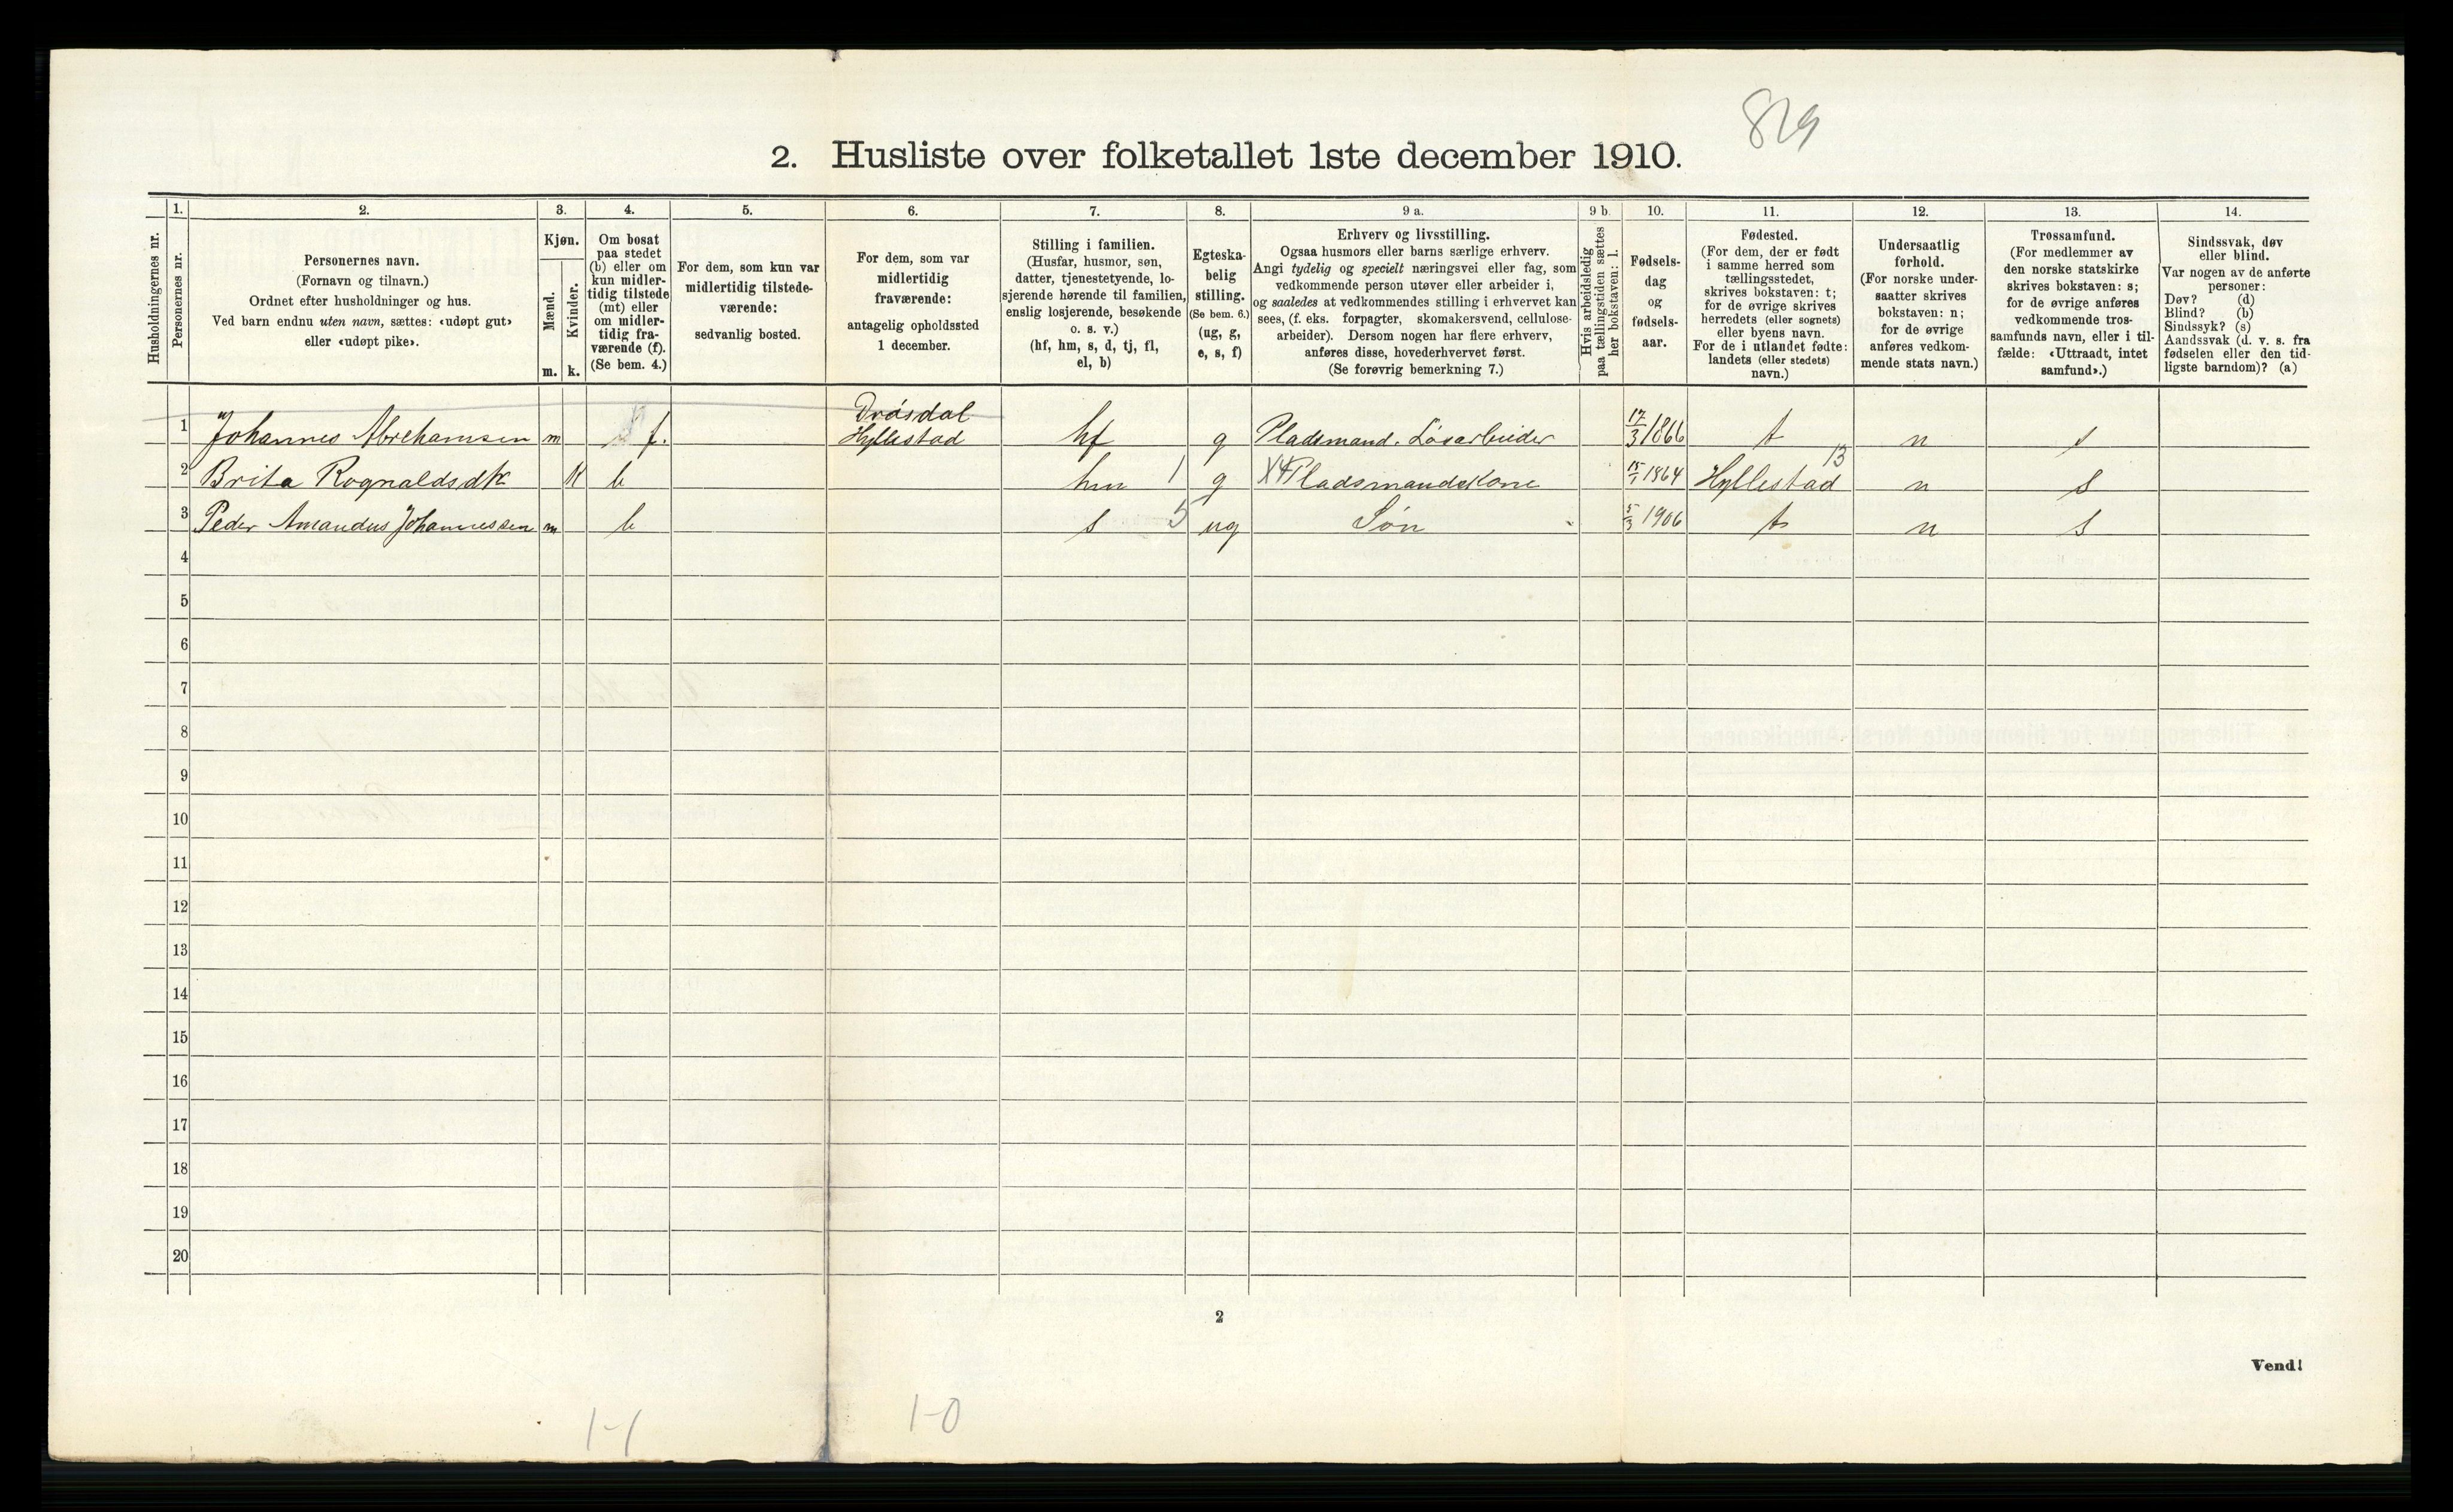 829
2. Husliste over folketallet 1ste december 1910.
Husholdningernes nr.
1.
Personernes nr.
2.
Personernes navn.
(Fornavn og tilnavn.)
Ordnet efter husholdninger og hus.
Ved barn endnu uten navn, sættes: «udøpt gut»
eller «udøpt pike».
3.
Kjøn.
Mænd.
Kvinder.
m. k.
4.
Om bosat
paa stedet
(b) eller om
kun midler-
tidig tilstede
(mt) eller
om midler-
tidig fra-
værende (f).
(Se bem. 4.)
5.
For dem, som kun var
midlertidig tilstede-
værende:
sedvanlig bosted.
6.
For dem, som var
midlertidig
fraværende:
antagelig opholdssted
1 december.
7.
Stilling i familien.
(Husfar, husmor, søn,
datter, tjenestetyende, lo-
sjerende hørende til familien,
enslig losjerende, besøkende
o. s. v.)
(hf, hm, s, d, tj, fl,
el, b)
8.
Egteska-
belig
stilling.
(Se bem. 6.)
(ug, g,
e, s, f)
9 a.
Erhverv og livsstilling.
Ogsaa husmors eller barns særlige erhverv.
Angi tydelig og specielt næringsvei eller fag, som
vedkommende person utøver eller arbeider i,
og saaledes at vedkommendes stilling i erhvervet kan
sees, (f. eks. forpagter, skomakersvend, cellulose-
arbeider). Dersom nogen har flere erhverv,
anføres disse, hovederhvervet først.
(Se forøvrig bemerkning 7.)
9 b.
Hvis arbeidsledig
paa tællingstiden sættes
her bokstaven: l.
10.
Fødsels-
dag
og
fødsels-
aar.
11.
Fødested.
(For dem, der er født
i samme herred som
tællingsstedet,
skrives bokstaven: t;
for de øvrige skrives
herredets (eller sognets)
eller byens navn.
For de i utlandet fødte:
landets (eller stedets)
navn.)
12.
Undersaatlig
forhold.
(For norske under-
saatter skrives
bokstaven: n;
for de øvrige
anføres vedkom-
mende stats navn.)
13.
Trossamfund.
(For medlemmer av
den norske statskirke
skrives bokstaven: s;
for de øvrige anføres
vedkommende tros-
samfunds navn, eller i til-
fælde: «Uttraadt, intet
samfund».)
14.
Sindssvak, døv
eller blind.
Var nogen av de anførte
personer:
Døv? (d)
Blind? (b)
Sindssyk? (s)
Aandssvak (d. v. s. fra
fødselen eller den tid-
ligste barndom)? (a)
1 Johannes Abrehamsen m f. Drøsdal Hyllestad hf g Pladsmand. Løsarbeider 17/3 1866 t n s
2 Brita Rognaldsdtr K b hm 1 g Pladsmandskone 1864 Hyllestad 13 n s
3 Peder Amandus Johannessen m b s 5 ug Søn 5/3 1906 t n s
4
5
6
7
8
9
10
11
12
13
14
15
16
17
18
19
20
2
Vend!
1-1
1-0